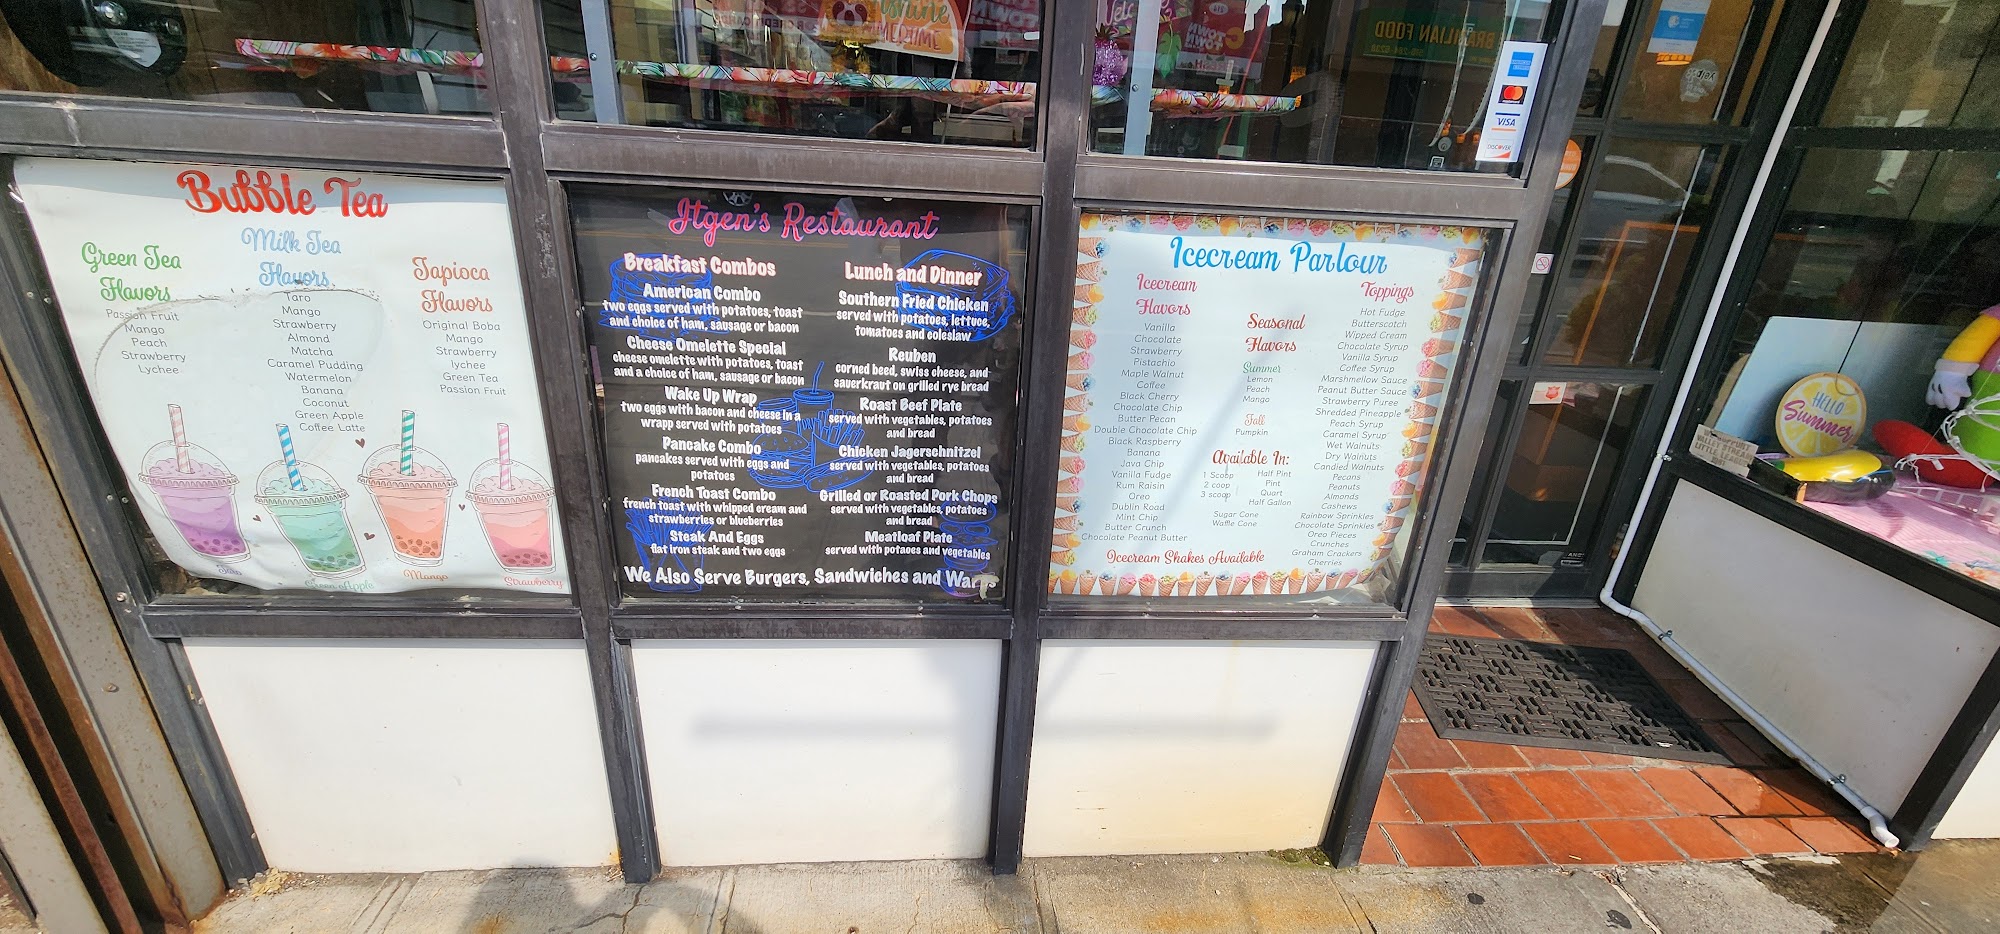 Bubble Tea
Green Tea
Flavors
Passion Fruit
Mango
Peach
Strawberry
Lychee
Milk Tea
Flavors
Taro
Mango
Strawberry
Almond
Matcha
Caramel Pudding
Watermelon
Banana
Coconut
Green Apple
Coffee Latte
Tapioca
Flavors
Original Boba
Mango
Strawberry
lychee
Green Tea
Passion Fruit
Taro
Green Apple
Mango
Strawberry
Itgen's Restaurant
Breakfast Combos
American Combo
two eggs served with potatoes, toast
and choice of ham, sausage or bacon
Cheese Omelette Special
cheese omelette with potatoes, toast
and a choice of ham, sausage or bacon
Wake Up Wrap
two eggs with bacon and cheese in a
wrapp served with potatoes
Pancake Combo
pancakes served with eggs and
potatoes
French Toast Combo
french toast with whipped cream and
strawberries or blueberries
Steak And Eggs
flat iron steak and two eggs
Lunch and Dinner
Southern Fried Chicken
served with potatoes, lettuce,
tomatoes and coleslaw
Reuben
corned beed, swiss cheese, and
sauerkraut on grilled rye bread
Roast Beef Plate
served with vegetables, potatoes
and bread
Chicken Jagerschnitzel
served with vegetables, potatoes
and bread
Grilled or Roasted Pork Chops
served with vegetables, potatoes
and bread
Meatloaf Plate
served with potaoes and vegetables
We Also Serve Burgers, Sandwiches and
Icecream Parlour
Icecream
Flavors
Vanilla
Chocolate
Strawberry
Pistachio
Maple Walnut
Coffee
Black Cherry
Chocolate Chip
Butter Pecan
Double Chocolate Chip
Black Raspberry
Banana
Java Chip
Vanilla Fudge
Rum Raisin
Oreo
Dublin Road
Mint Chip
Butter Crunch
Chocolate Peanut Butter
Seasonal
Flavors
Summer
Lemon
Peach
Mango
Fall
Pumpkin
Available In:
1 Scoop
2 coop
3 scoop
Half Pint
Pint
Quart
Half Gallon
Sugar Cone
Waffle Cone
Toppings
Hot Fudge
Butterscotch
Wipped Cream
Chocolate Syrup
Vanilla Syrup
Coffee Syrup
Marshmellow Sauce
Peanut Butter Sauce
Strawberry Puree
Shredded Pineapple
Peach Syrup
Caramel Syrup
Wet Walnuts
Dry Walnuts
Candied Walnuts
Pecans
Peanuts
Almonds
Cashews
Rainbow Sprinkles
Chocolate Sprinkles
Oreo Pieces
Crunches
Graham Crackers
Cherries
Icecream Shakes Available
VISA
DISCOVER
BRAZILIAN FOOD
HELLO
Summer
VALLEY STREAM
LITTLE LEAGUE